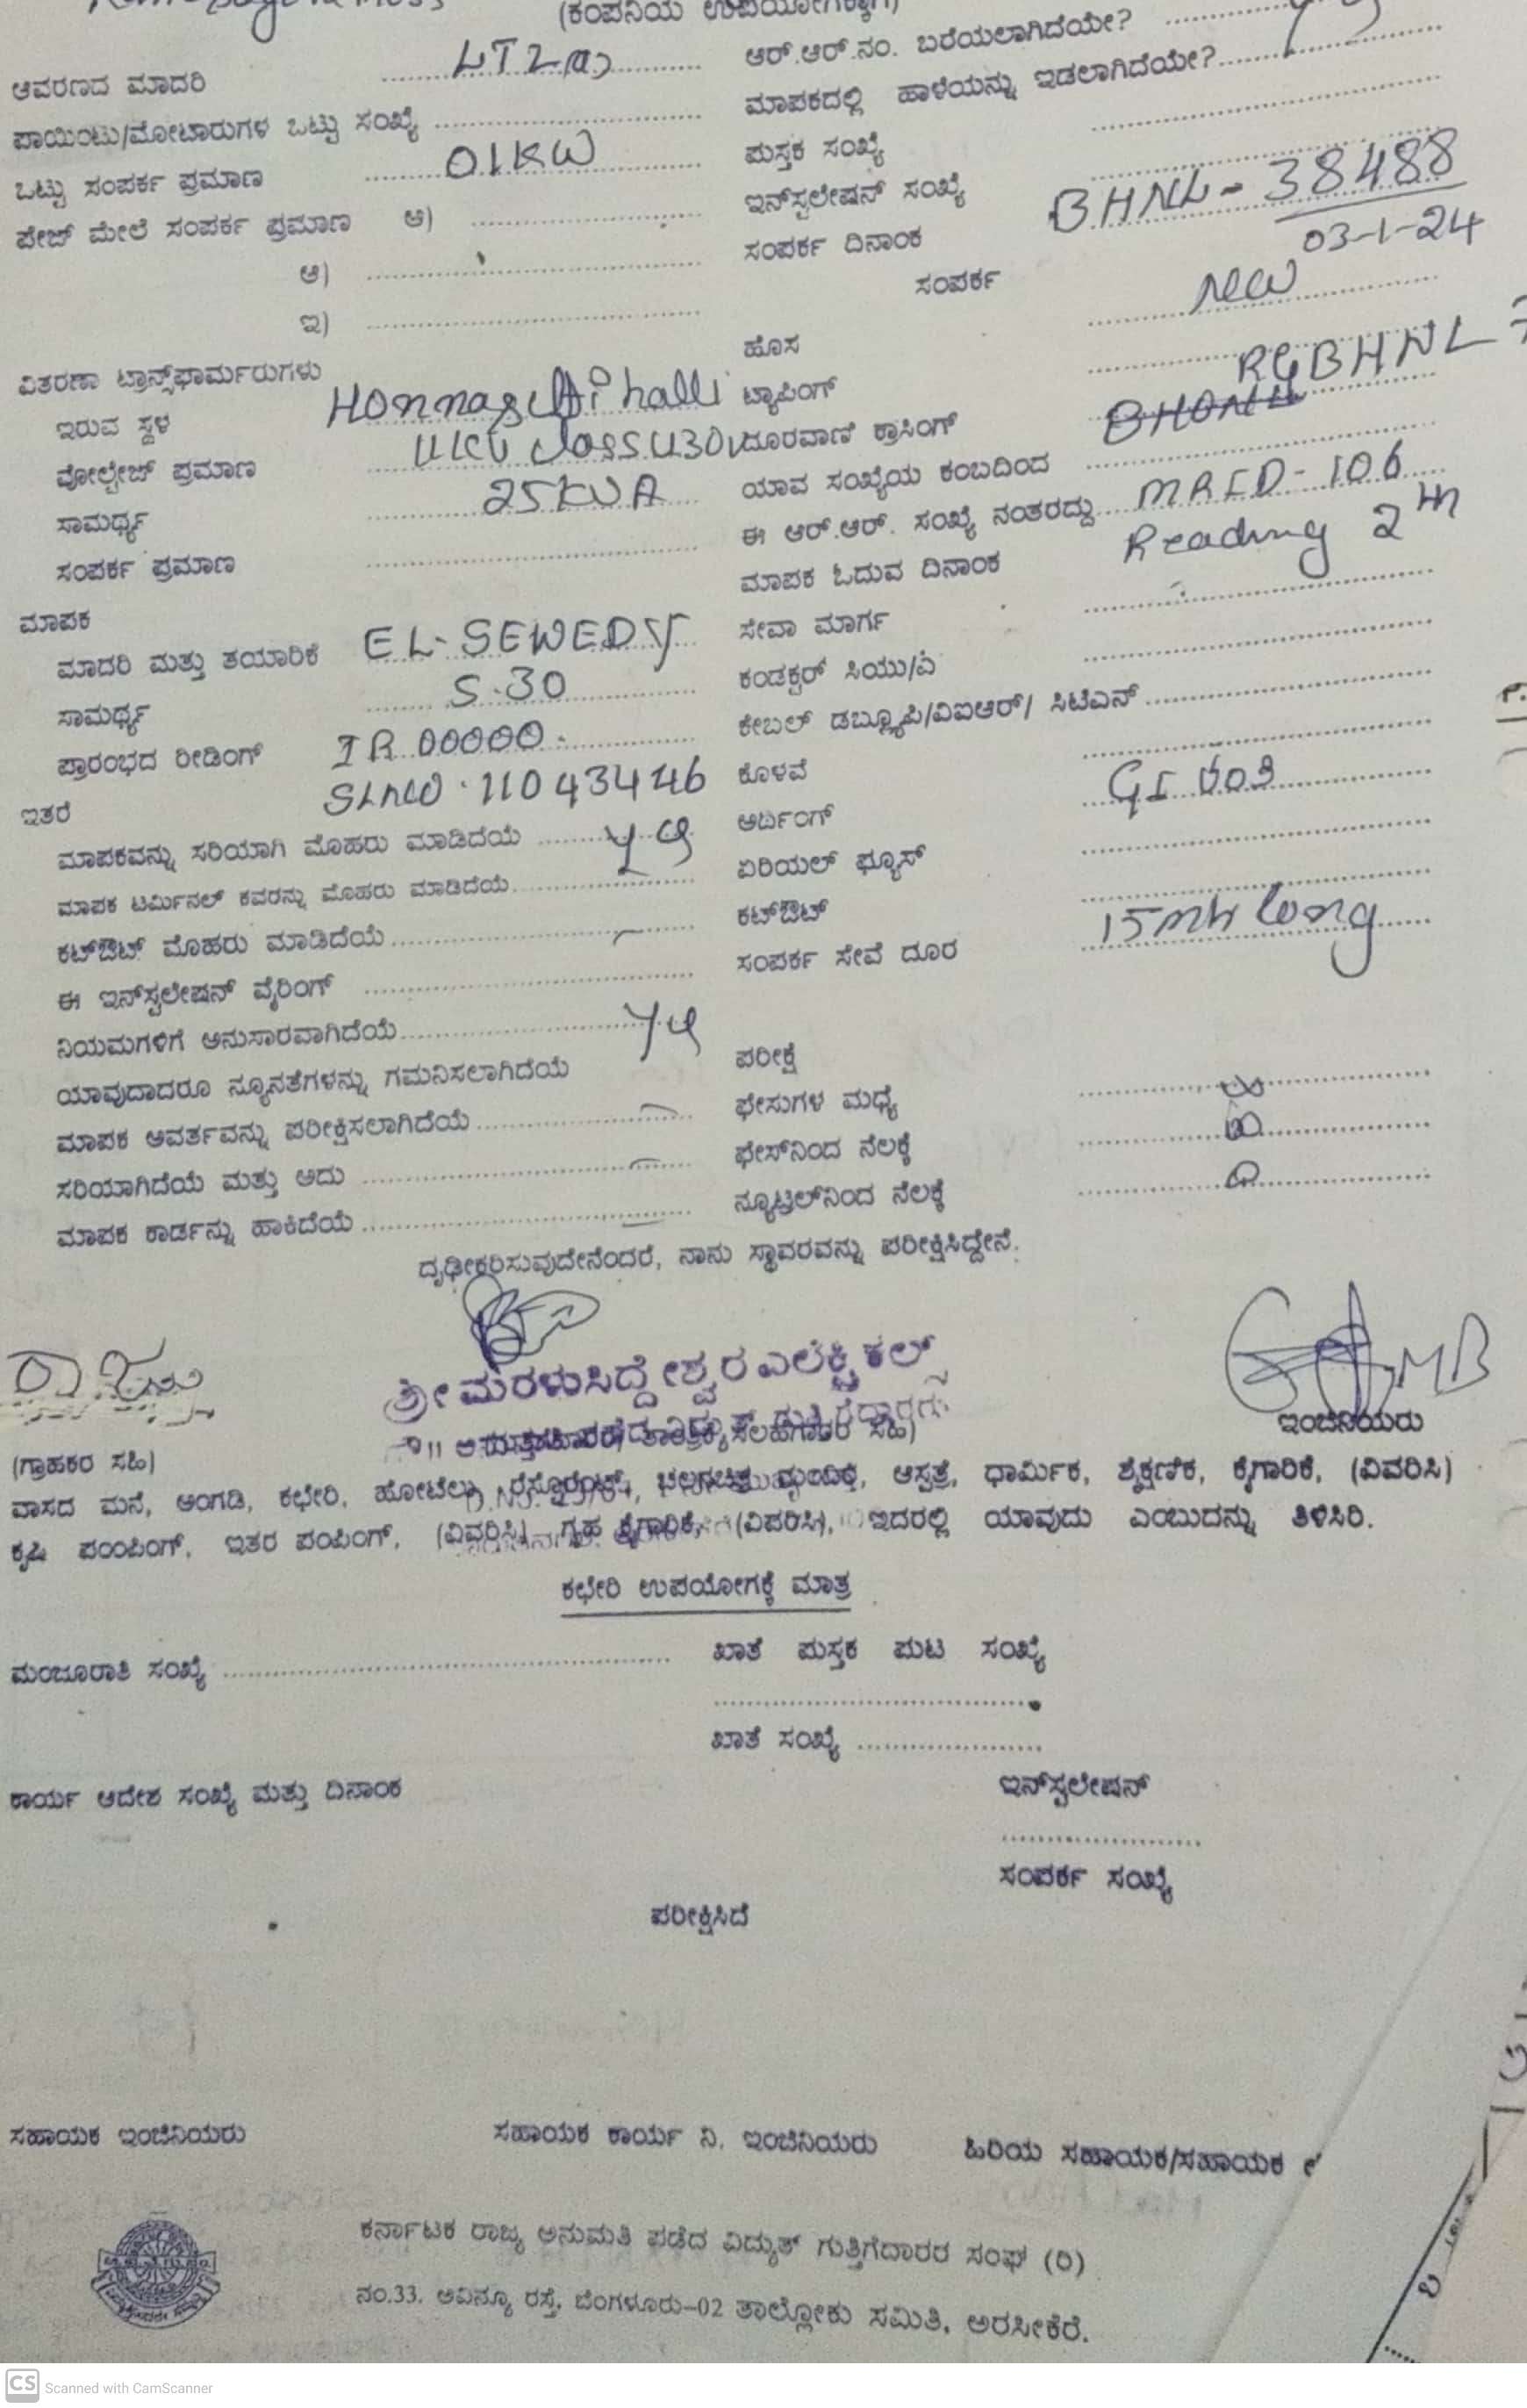 (ಕಂಪನಿಯ ಉಪಯೋಗಕ್ಕಾಗಿ)
ಆವರಣದ ಮಾದರಿ LT2(a)
ಪಾಯಿಂಟು/ಮೋಟಾರುಗಳ ಒಟ್ಟು ಸಂಖ್ಯೆ
ಒಟ್ಟು ಸಂಪರ್ಕ ಪ್ರಮಾಣ 01KW
ಪೇಜ್ ಮೇಲೆ ಸಂಪರ್ಕ ಪ್ರಮಾಣ ಅ)
ಆ)
ಇ)
ವಿತರಣಾ ಟ್ರಾನ್ಸ್‌ಫಾರ್ಮರುಗಳು
ಇರುವ ಸ್ಥಳ
ವೋಲ್ಟೇಜ್ ಪ್ರಮಾಣ 11KV class
ಸಾಮರ್ಥ್ಯ 25KVA
ಸಂಪರ್ಕ ಪ್ರಮಾಣ
ಮಾಪಕ
ಮಾದರಿ ಮತ್ತು ತಯಾರಿಕೆ EL-SEWEDY
ಸಾಮರ್ಥ್ಯ 5-30
ಪ್ರಾರಂಭದ ರೀಡಿಂಗ್ IR 00000.
ಇತರೆ SLNO. 11043446
ಮಾಪಕವನ್ನು ಸರಿಯಾಗಿ ಮೊಹರು ಮಾಡಿದೆಯೆ
ಮಾಪಕ ಟರ್ಮಿನಲ್ ಕವರನ್ನು ಮೊಹರು ಮಾಡಿದೆಯೆ
ಕಟ್‌ಔಟ್ ಮೊಹರು ಮಾಡಿದೆಯೆ
ಈ ಇನ್‌ಸ್ಟಲೇಷನ್ ವೈರಿಂಗ್
ನಿಯಮಗಳಿಗೆ ಅನುಸಾರವಾಗಿದೆಯೆ
ಯಾವುದಾದರೂ ನ್ಯೂನತೆಗಳನ್ನು ಗಮನಿಸಲಾಗಿದೆಯೆ
ಮಾಪಕ ಆವರ್ತವನ್ನು ಪರೀಕ್ಷಿಸಲಾಗಿದೆಯೆ
ಸರಿಯಾಗಿದೆಯೆ ಮತ್ತು ಅದು
ಮಾಪಕ ಕಾರ್ಡನ್ನು ಹಾಕಿದೆಯೆ
ಆರ್.ಆರ್.ನಂ. ಬರೆಯಲಾಗಿದೆಯೇ?
ಮಾಪಕದಲ್ಲಿ ಹಾಳೆಯನ್ನು ಇಡಲಾಗಿದೆಯೇ?
ಪುಸ್ತಕ ಸಂಖ್ಯೆ
ಇನ್‌ಸ್ಟಲೇಷನ್ ಸಂಖ್ಯೆ BHNL-38488
ಸಂಪರ್ಕ ದಿನಾಂಕ 03-1-24
ಸಂಪರ್ಕ New
ಹೊಸ
ಟ್ಯಾಪಿಂಗ್
ದೂರವಾಣಿ ಕ್ರಾಸಿಂಗ್
ಯಾವ ಸಂಖ್ಯೆಯ ಕಂಬದಿಂದ
ಈ ಆರ್.ಆರ್. ಸಂಖ್ಯೆ ನಂತರದ್ದು
ಮಾಪಕ ಓದುವ ದಿನಾಂಕ Reading 2th
ಸೇವಾ ಮಾರ್ಗ
ಕಂಡಕ್ಟರ್ ಸಿಯು/ಎ
ಕೇಬಲ್ ಡಬ್ಲ್ಯೂಪಿ/ವಿಐಆರ್/ ಸಿಟಿಎನ್
ಕೊಳವೆ
ಅರ್ಥಿಂಗ್
ಏರಿಯಲ್ ಫ್ಯೂಸ್
ಕಟ್‌ಔಟ್
ಸಂಪರ್ಕ ಸೇವೆ ದೂರ 15mtr long
ಪರೀಕ್ಷೆ
ಫೇಸುಗಳ ಮಧ್ಯೆ
ಫೇಸ್‌ನಿಂದ ನೆಲಕ್ಕೆ
ನ್ಯೂಟ್ರಲ್‌ನಿಂದ ನೆಲಕ್ಕೆ
ದೃಢೀಕರಿಸುವುದೇನೆಂದರೆ, ನಾನು ಸ್ಥಾವರವನ್ನು ಪರೀಕ್ಷಿಸಿದ್ದೇನೆ.
ಶ್ರೀ ಮರಳುಸಿದ್ದೇಶ್ವರ ಎಲೆಕ್ಟ್ರಿಕಲ್ಸ್
ಇಂಜಿನಿಯರು
(ಗ್ರಾಹಕರ ಸಹಿ)
ವಾಸದ ಮನೆ, ಅಂಗಡಿ, ಕಛೇರಿ, ಹೋಟೆಲು, ರೆಸ್ಟೋರೆಂಟ್, ಚಲನಚಿತ್ರ ಮಂದಿರ, ಆಸ್ಪತ್ರೆ, ಧಾರ್ಮಿಕ, ಶೈಕ್ಷಣಿಕ, ಕೈಗಾರಿಕೆ, (ವಿವರಿಸಿ)
ಕೃಷಿ ಪಂಂಪಿಂಗ್, ಇತರ ಪಂಪಿಂಗ್, (ವಿವರಿಸಿ) ಗೃಹ ಕೈಗಾರಿಕೆ, (ವಿವರಿಸಿ), ಇದರಲ್ಲಿ ಯಾವುದು ಎಂಬುದನ್ನು ತಿಳಿಸಿರಿ.
ಕಛೇರಿ ಉಪಯೋಗಕ್ಕೆ ಮಾತ್ರ
ಮಂಜೂರಾತಿ ಸಂಖ್ಯೆ ಖಾತೆ ಪುಸ್ತಕ ಪುಟ ಸಂಖ್ಯೆ
ಖಾತೆ ಸಂಖ್ಯೆ
ಕಾರ್ಯ ಆದೇಶ ಸಂಖ್ಯೆ ಮತ್ತು ದಿನಾಂಕ ಇನ್‌ಸ್ಟಲೇಷನ್
ಸಂಪರ್ಕ ಸಂಖ್ಯೆ
ಪರೀಕ್ಷಿಸಿದೆ
ಸಹಾಯಕ ಇಂಜಿನಿಯರು ಸಹಾಯಕ ಕಾರ್ಯ ನಿ. ಇಂಜಿನಿಯರು ಹಿರಿಯ ಸಹಾಯಕ/ಸಹಾಯಕ
ಕರ್ನಾಟಕ ರಾಜ್ಯ ಅನುಮತಿ ಪಡೆದ ವಿದ್ಯುತ್ ಗುತ್ತಿಗೆದಾರರ ಸಂಘ (ರಿ)
ನಂ.33. ಅವಿನ್ಯೂ ರಸ್ತೆ, ಬೆಂಗಳೂರು-02 ತಾಲ್ಲೋಕು ಸಮಿತಿ, ಅರಸೀಕೆರೆ.
CS Scanned with CamScanner